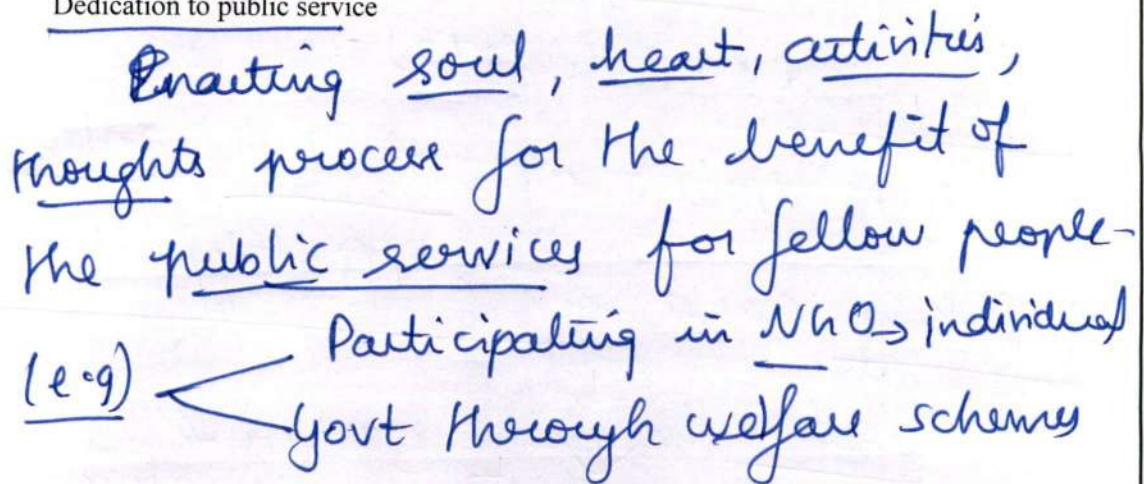 Dedication to public service
Enacting soul, heart, activities,
thoughts process for the benefit of
the public services for fellow people-
(e.g) Participating in NGOs individual
Govt through welfare schemes